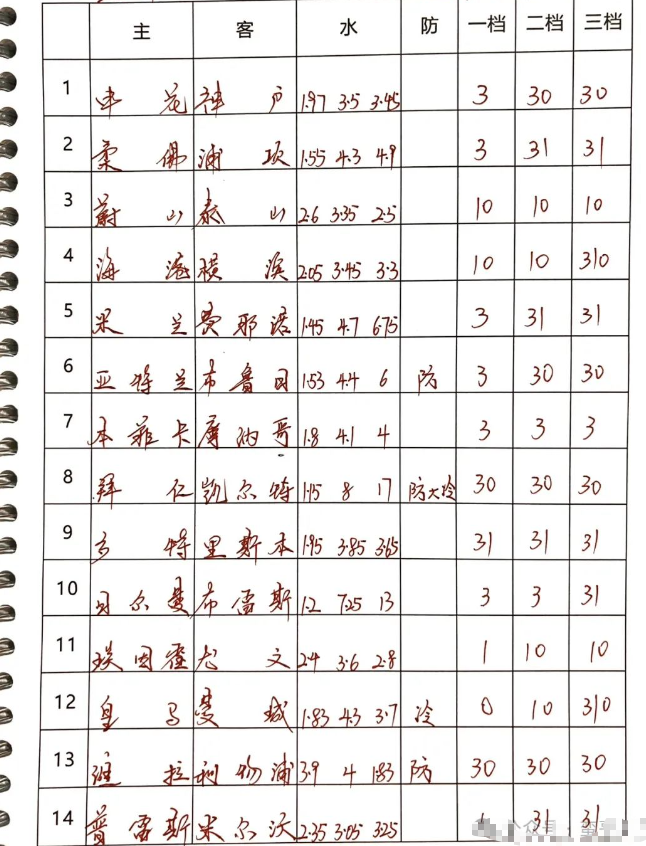 主 客 水 防 一档 二档 三档
1 申花 神户 1.97 3.5 3.45 3 30 30
2 柔佛 浦项 1.55 4.3 4.9 3 31 31
3 蔚山 泰山 2.6 3.35 2.5 10 10 10
4 海港 横滨 2.05 3.45 3.3 10 10 310
5 米兰 费耶诺 1.45 4.7 6.75 3 31 31
6 亚特兰 布鲁日 1.53 4.4 6 防 3 30 30
7 本菲卡 摩纳哥 1.8 4.1 4 3 3 3
8 拜仁 凯尔特 1.15 8 17 防大冷 30 30 30
9 多特 里斯本 1.95 3.85 3.65 31 31 31
10 贝尔曼 布雷斯 1.2 7.25 13 3 3 31
11 埃因霍 尤文 2.4 3.6 2.8 1 10 10
12 皇马 曼城 1.83 4.3 3.7 冷 0 10 310
13 维拉 利物浦 3.9 4 1.83 防 30 30 30
14 普雷斯 米尔沃 2.35 3.05 3.25 31 31
公众号